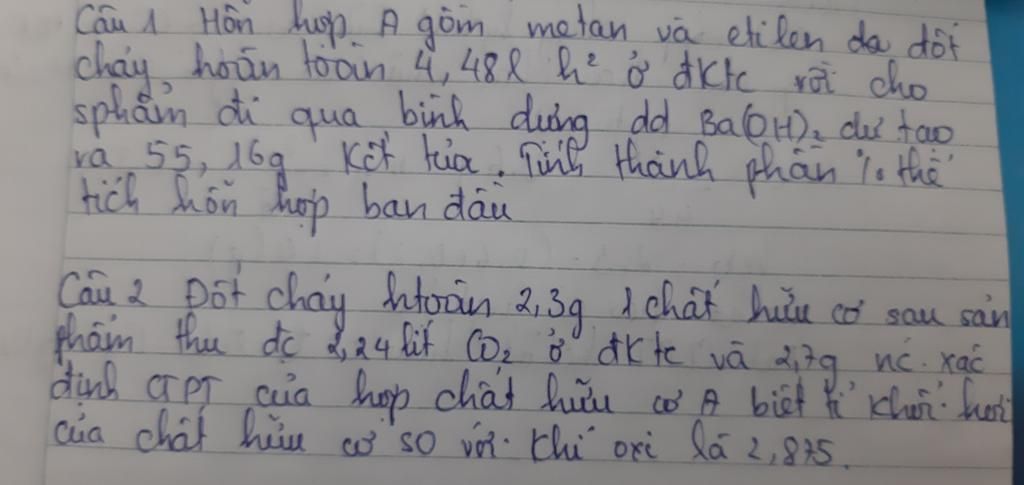 Câu 1 Hỗn hợp A gồm metan và etilen da đốt
cháy hoàn toàn 4,48l h² ở đktc rồi cho
sphẩm đi qua bình dựng dd Ba(OH)₂ dư tạo
ra 55,16g kết tủa. Tính thành phần % thể
tích hỗn hợp ban đầu
Câu 2 Đốt cháy htoàn 2,3g 1 chất hữu cơ sau sản
phẩm thu đc 2,24 lít CO₂ ở đktc và 2,7g nc. xác
định CTPT của hợp chất hữu cơ A biết tỉ khối hơi
của chất hữu cơ so với khí oxi là 2,875.